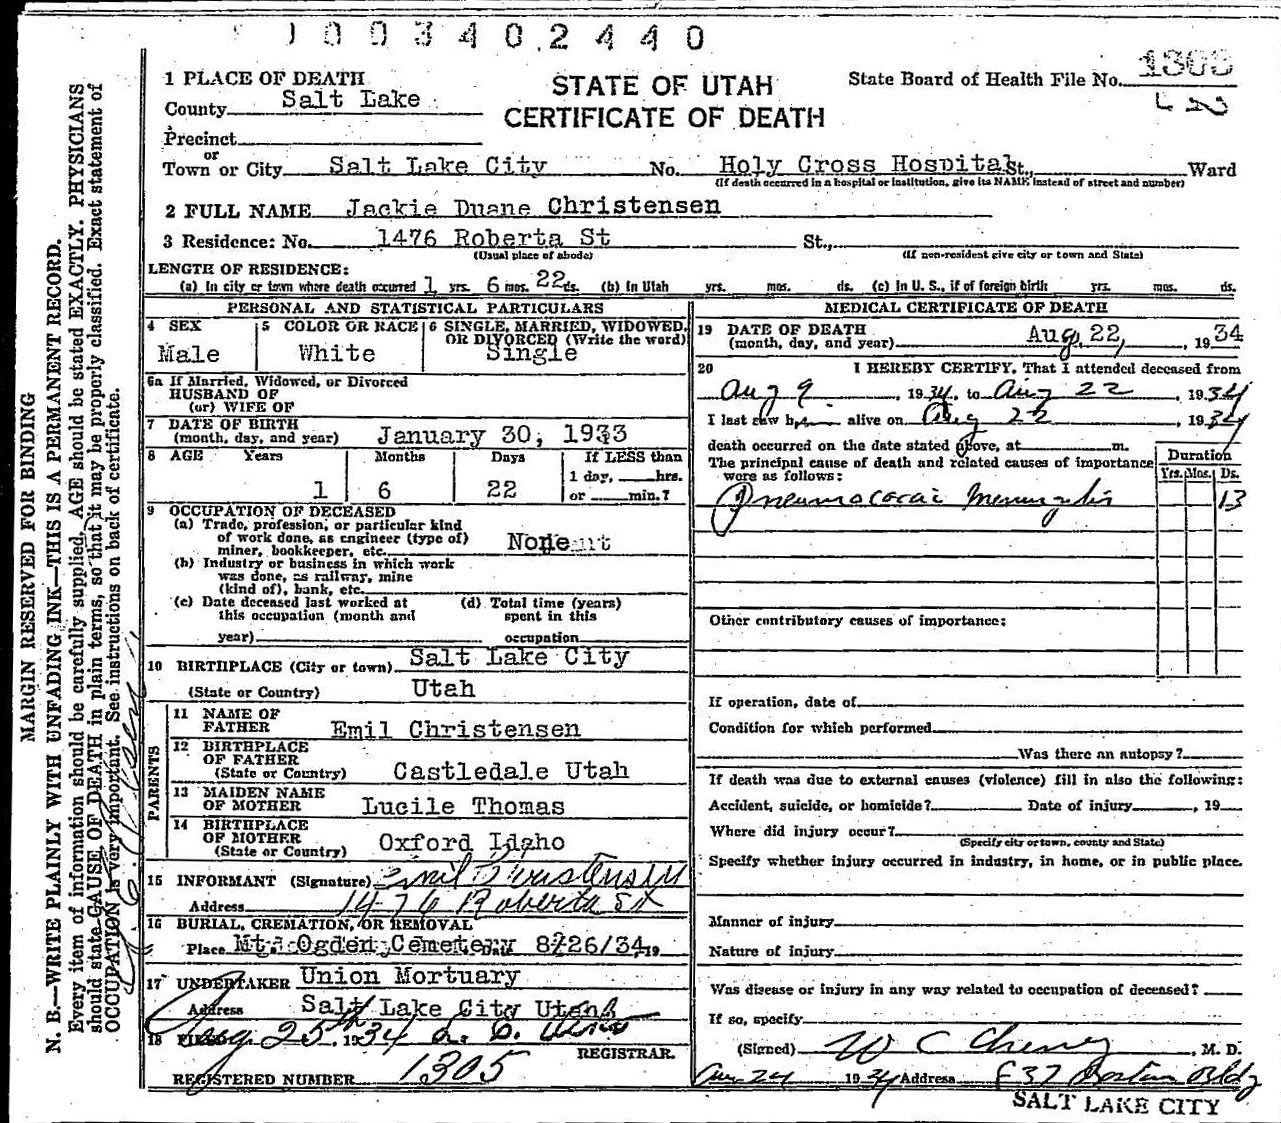 1003402440
1 PLACE OF DEATH
STATE OF UTAH
CERTIFICATE OF DEATH
State Board of Health File No. 1305
County Salt Lake
Precinct
or
Town or City Salt Lake City No. Holy Cross Hospital St., Ward
(If death occurred in a hospital or institution, give its NAME instead of street and number)
2 FULL NAME Jackie Duane Christensen
3 Residence: No. 1476 Roberta St St.,
(Usual place of abode) (If non-resident give city or town and State)
LENGTH OF RESIDENCE:
(a) In city or town where death occurred 1 yrs. 6 mos. 22 ds. (b) In Utah yrs. mos. ds. (c) In U. S., if of foreign birth yrs. mos. ds.
PERSONAL AND STATISTICAL PARTICULARS
4 SEX
Male
5 COLOR OR RACE
White
6 SINGLE, MARRIED, WIDOWED,
OR DIVORCED (Write the word)
Single
6a If Married, Widowed, or Divorced
HUSBAND OF
(or) WIFE OF
7 DATE OF BIRTH
(month, day, and year) January 30, 1933
8 AGE Years Months Days If LESS than
1 day, hrs.
1 6 22 or min.?
9 OCCUPATION OF DECEASED
(a) Trade, profession, or particular kind
of work done, as engineer (type of)
miner, bookkeeper, etc. None
(b) Industry or business in which work
was done, as railway, mine
(kind of), bank, etc.
(c) Date deceased last worked at
this occupation (month and
year)
(d) Total time (years)
spent in this
occupation
10 BIRTHPLACE (City or town) Salt Lake City
(State or Country) Utah
PARENTS
11 NAME OF
FATHER Emil Christensen
12 BIRTHPLACE
OF FATHER
(State or Country) Castledale Utah
13 MAIDEN NAME
OF MOTHER Lucile Thomas
14 BIRTHPLACE
OF MOTHER
(State or Country) Oxford Idaho
15 INFORMANT (Signature) Emil Christensen
Address 1476 Roberta St
16 BURIAL, CREMATION, OR REMOVAL
Place Mt. Ogden Cemetery Date 8/26/34 19
17 UNDERTAKER Union Mortuary
Address Salt Lake City Utah
18 FILED Aug. 25th 1934
REGISTRAR.
REGISTERED NUMBER 1305
MEDICAL CERTIFICATE OF DEATH
19 DATE OF DEATH
(month, day, and year) Aug. 22, , 1934
20 I HEREBY CERTIFY, That I attended deceased from
Aug 9 , 1934, to Aug 22 , 1934
I last saw him alive on Aug 22 , 1934
death occurred on the date stated above, at m.
The principal cause of death and related causes of importance
were as follows:
Duration
Yrs. Mos. Ds.
Pneumococcic Meningitis 13
Other contributory causes of importance:
If operation, date of
Condition for which performed
Was there an autopsy?
If death was due to external causes (violence) fill in also the following:
Accident, suicide, or homicide? Date of injury , 19
Where did injury occur?
(Specify city or town, county and State)
Specify whether injury occurred in industry, in home, or in public place.
Manner of injury
Nature of injury
Was disease or injury in any way related to occupation of deceased?
If so, specify
(Signed) W C Cheney , M. D.
Aug 24 1934 Address 837 Boston Bldg
SALT LAKE CITY
MARGIN RESERVED FOR BINDING
N. B.—WRITE PLAINLY WITH UNFADING INK—THIS IS A PERMANENT RECORD.
Every item of information should be carefully supplied. AGE should be stated EXACTLY. PHYSICIANS
should state CAUSE OF DEATH in plain terms, so that it may be properly classified. Exact statement of
OCCUPATION is very important. See instructions on back of certificate.